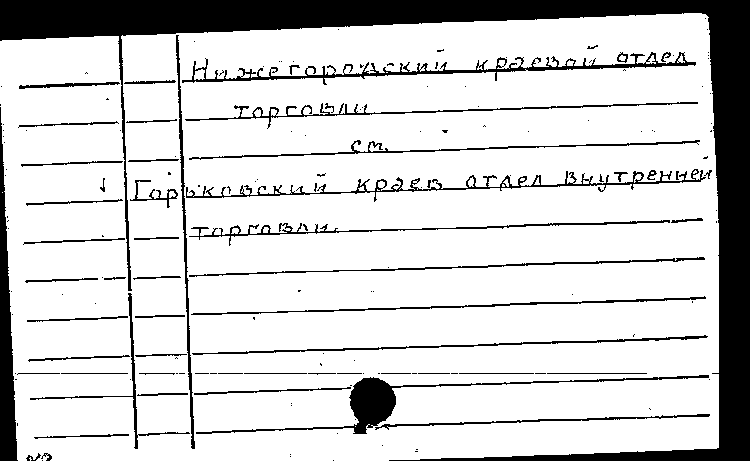 Нижегородский краевой отдел
торговли
см.
Горьковский краев отдел внутренней
торговли.